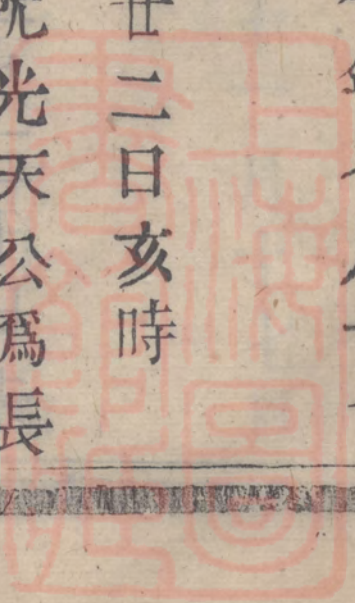 廿二日亥時
光天公爲長
上海圖
書館藏